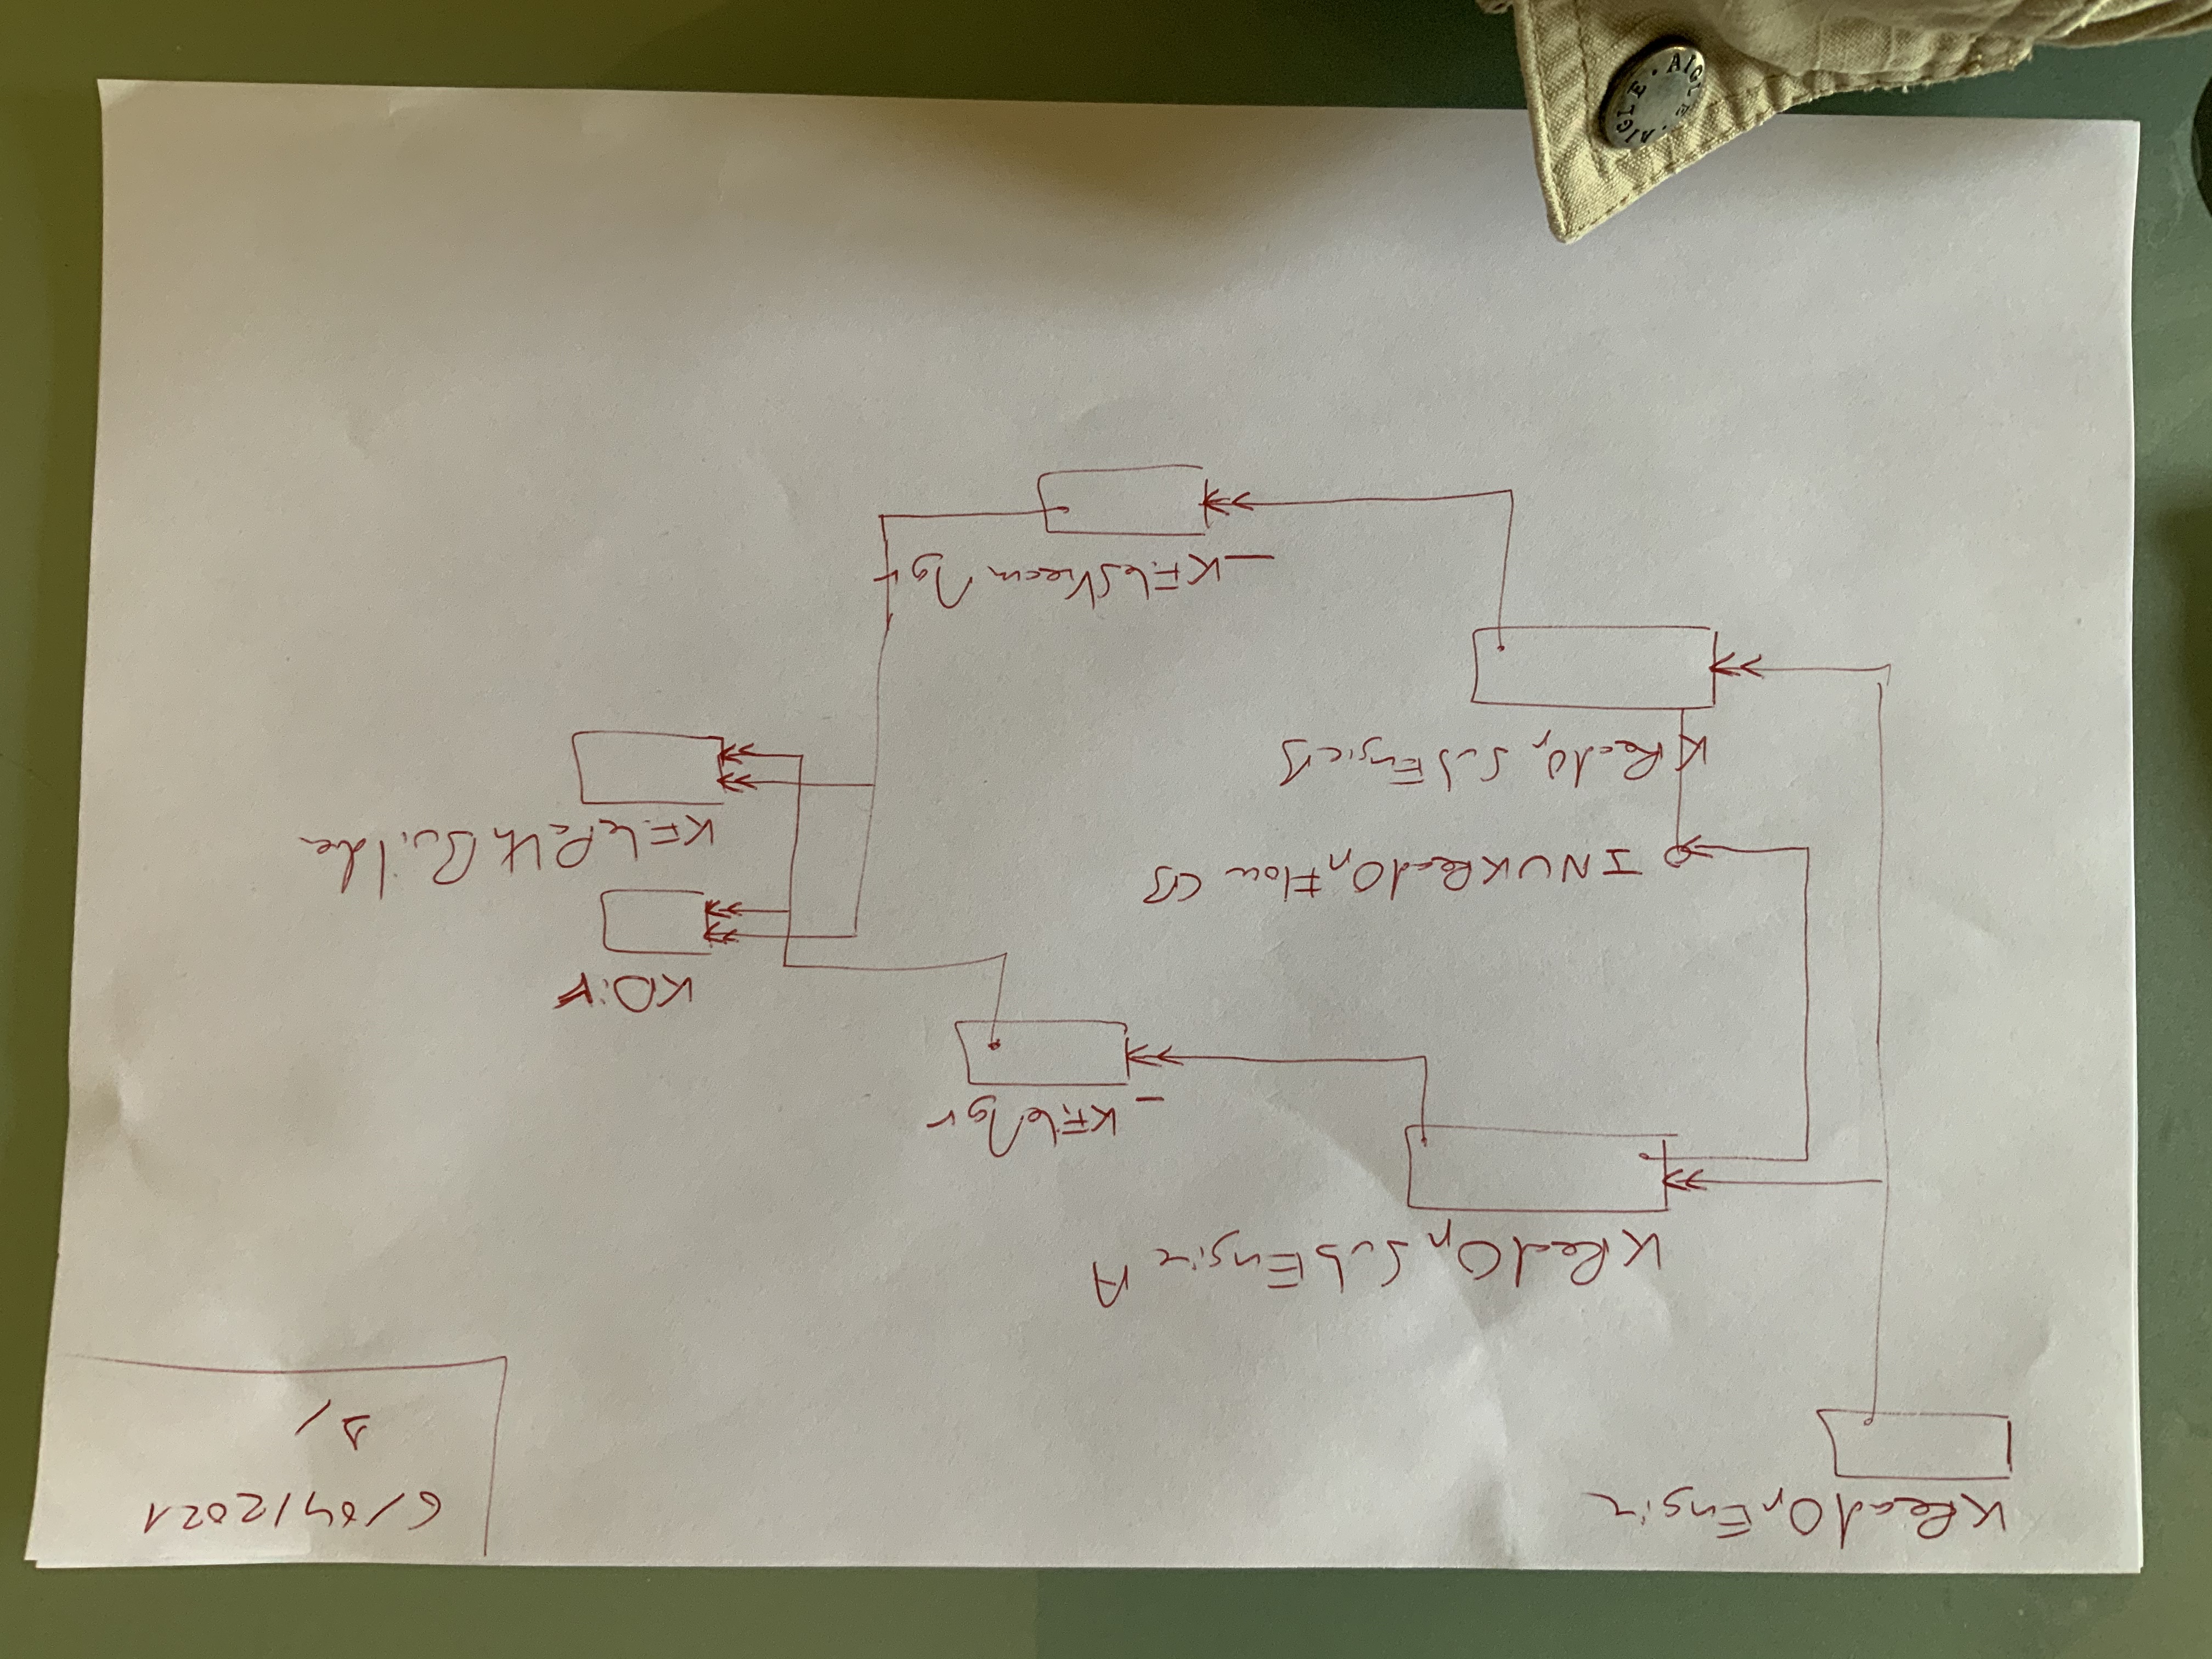 KReadOpEngine
6/04/2021
1/
KReadOpSubEngineA
_KFileMgr
KDir
INUKReadOpFlowCB
KFilePathBuilder
KReadOpSubEngineB
_KFileStreamMgr
AIGLE · AIGLE ·